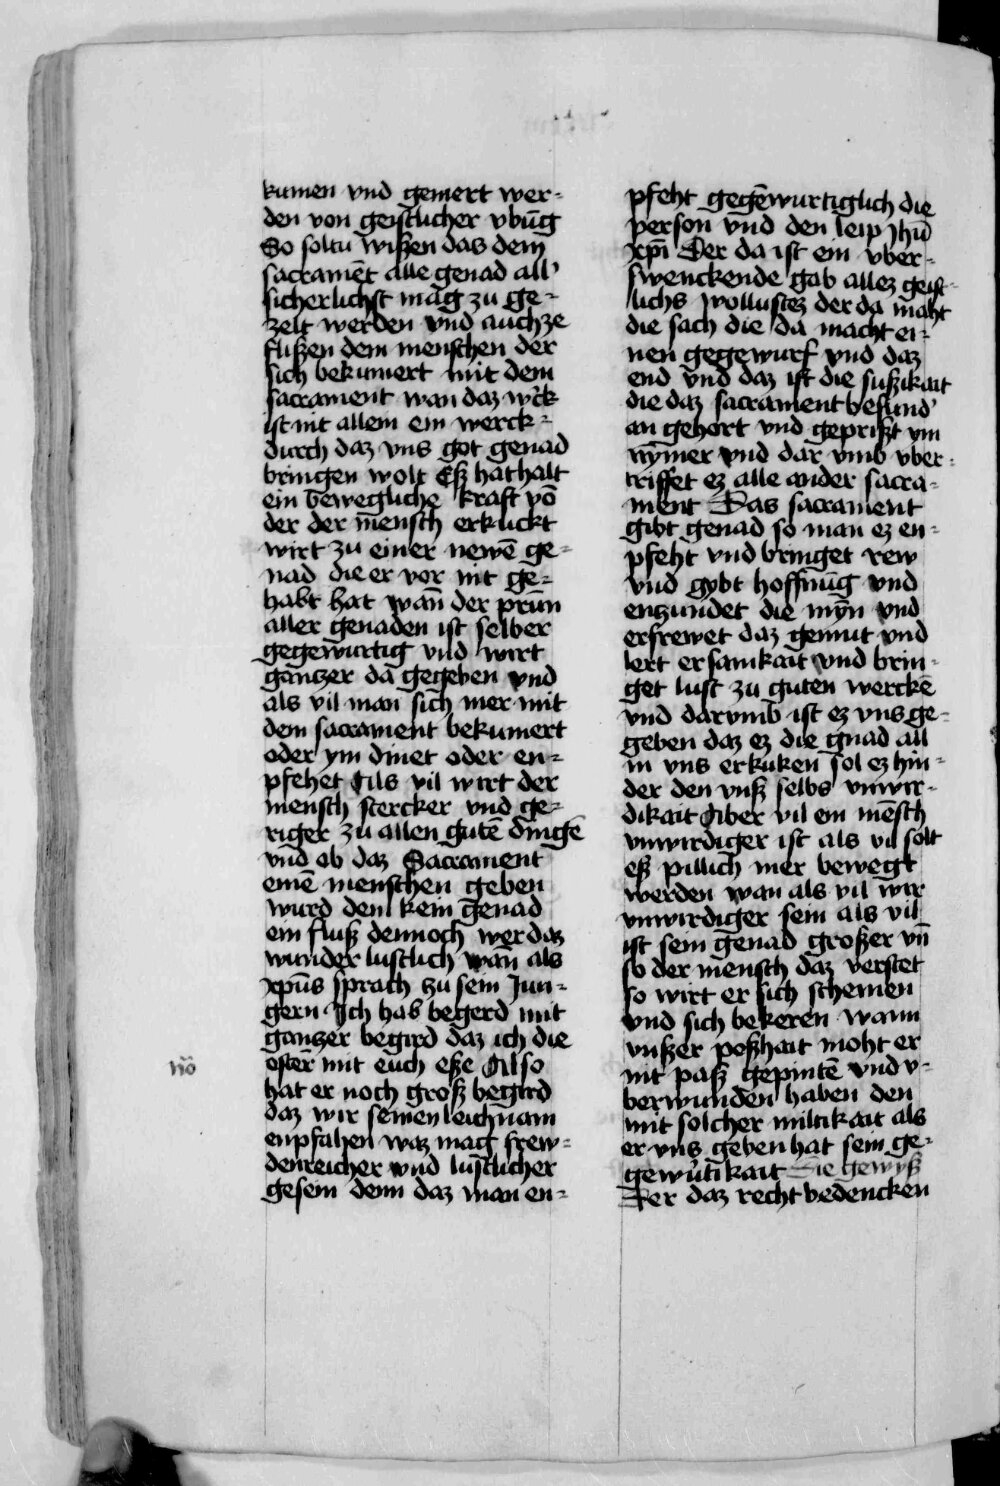 kumen vnd gemert wer-
den von geistlicher vbūg
So soltu wißen das dem
sacramēt alle genad all'
sicherlichst mag zu ge-
zelt werden vnd auch ze
flißen dem menschen der
sich bekumert mit dem
sacrament wan daz w'ck
ist mit allem ein werck-
durch daz vns got genad
bringen wolt Eß hat halt
ein bewegliche kraft vō
der der mensch erkuckt
wirt zu einer newē ge-
nad die er vor nit ge-
habt hat wan̄ der prūn
aller genaden ist selber
gegewurtig vnd wirt
gantzer da gegeben vnd
als vil man sich mer mit
dem sacrament bekumert
oder ym dinet oder en-
pfehet Als vil wirt der
mensch stercker vnd ge-
riger zu allen gutē dingē
vnd ob daz Sacrament
einē menschen geben
wurd dem kein genad
ein fluß dennoch wer daz
wunder lustlich wan̄ als
xp̄us sprach zu sein Jun-
gern Ich hab begerd mit
gantzer begird daz ich die
oster mit euch eße Also
hat er noch groß begird
daz wir seinen leichnam
enpfahen waz mag frew-
denreicher vnd lustlicher
gesein denn daz man en-
nō
pfeht gegēwurtiglich die
person vnd den leip Jhū
xp̄i Der da ist ein vber-
swenckende gab allez geist-
lichs wollustez der da maht
die sach die da macht ei-
nen gegewurf vnd daz
end vnd daz ist die sußikait
die daz sacrament besund'
an gehort vnd geprißt vm
nȳmer vnd dar vmb vber-
triffet ez alle ander sacra-
ment Das sacrament
gibt genad so man ez en-
pfeht vnd bringet rew
vnd gybt hoffnūg vnd
enzundet die mȳn vnd
erfrewet daz gemut vnd
lert ersamkait vnd brin-
get lust zu guten werckē
vnd darvmb ist ez vns ge-
geben daz ez die gnad all
in vns erkuken sol ez hin-
der den vnß selbs vnwir-
dikait Aber vil ein mēsch
vnwirdiger ist als vil solt
eß pillich mer bewegt
werden wan als vil wir
vnwirdiger sein als vil
ist sein genad großer vn̄
so der mensch daz verstet
so wirt er sich schemen
vnd sich bekeren wann
vnßer poßhait moht er
nit paß gepintē vnd v-
berwunden haben den
mit solcher miltikait als
er vns geben hat sein ge-
gew'tikait Die gewyß
Der daz recht bedencken